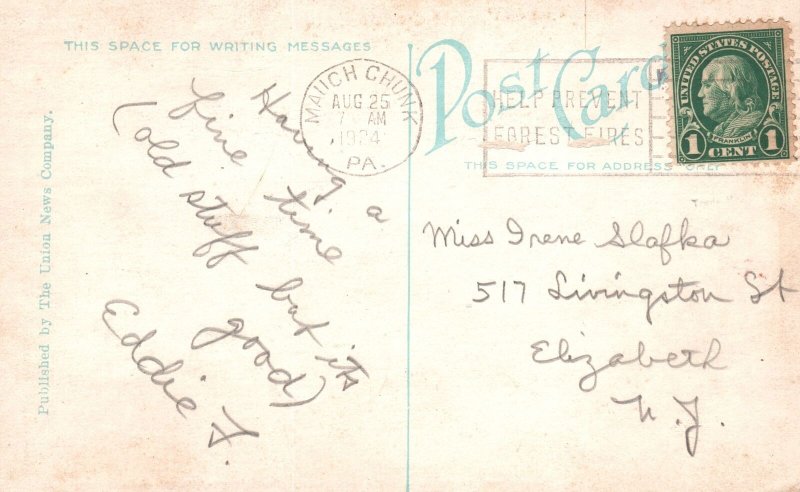 THIS SPACE FOR WRITING MESSAGES
Post Card
THIS SPACE FOR ADDRESS ONLY
Published by The Union News Company.
MAUCH CHUNK
AUG 25
7 AM
1924
PA.
HELP PREVENT
FOREST FIRES
UNITED STATES POSTAGE
FRANKLIN
1 CENT 1
Having a
fine time
(old stuff but its
good)
Eddie F.
Miss Irene Slafka
517 Livingston St
Elizabeth
N.J.